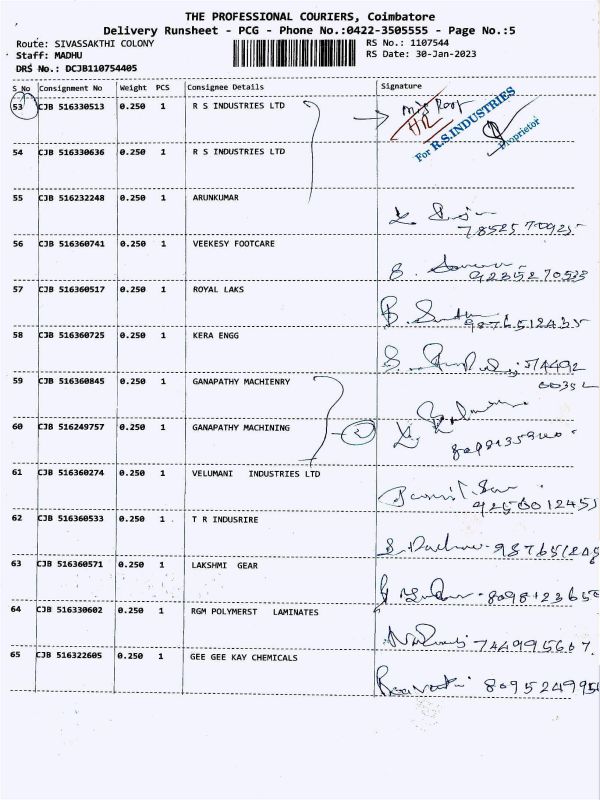 THE PROFESSIONAL COURIERS, Coimbatore
Delivery Runsheet - PCG - Phone No.:0422-3505555 - Page No.:5
Route: SIVASSAKTHI COLONY
Staff: MADHU
DRS No.: DCJB110754405
RS No.: 1107544
RS Date: 30-Jan-2023
S_No Consignment No Weight PCS Consignee Details Signature
53 CJB 516330513 0.250 1 R S INDUSTRIES LTD
For R.S.INDUSTRIES
Proprietor
54 CJB 516330636 0.250 1 R S INDUSTRIES LTD
55 CJB 516232248 0.250 1 ARUNKUMAR
56 CJB 516360741 0.250 1 VEEKESY FOOTCARE
9235270538
57 CJB 516360517 0.250 1 ROYAL LAKS
9876512435
58 CJB 516360725 0.250 1 KERA ENGG
59 CJB 516360845 0.250 1 GANAPATHY MACHIENRY
60 CJB 516249757 0.250 1 GANAPATHY MACHINING
2
61 CJB 516360274 0.250 1 VELUMANI INDUSTRIES LTD
62 CJB 516360533 0.250 1 T R INDUSRIRE
63 CJB 516360571 0.250 1 LAKSHMI GEAR
64 CJB 516330602 0.250 1 RGM POLYMERST LAMINATES
744995667
65 CJB 516322605 0.250 1 GEE GEE KAY CHEMICALS